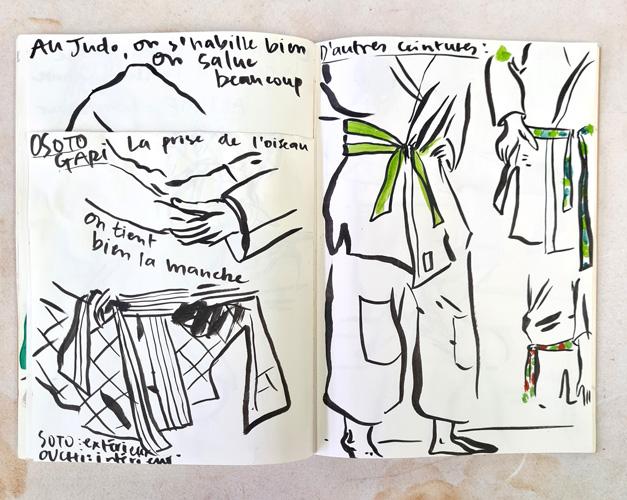 Au Judo, on s'habille bien
on salue
beaucoup
OSOTO
GARI
La prise de l'oiseau
on tient
bien la manche
SOTO: extérieur
OUCHI: intérieur.
D'autres ceintures: